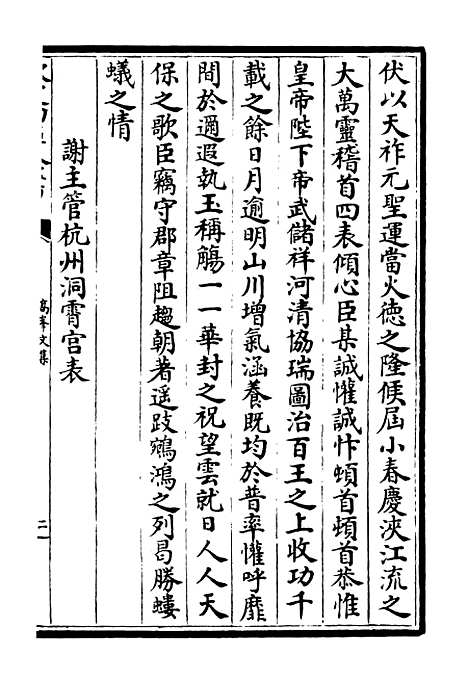 伏以天祚元聖運當火徳之隆候屆小春慶浹江流之
大萬靈稽首四表傾心臣某誠懽誠忭頓首頓首恭惟
皇帝陛下帝武儲祥河清協瑞圖治百王之上收功千
載之餘日月逾明山川增氣涵養既均於普率懽呼靡
間於邇遐執玉稱觴一一華封之祝望雲就日人人天
保之歌臣竊守郡章阻趨朝著遥跂鵷鴻之列曷勝螻
蟻之情
謝主管杭州洞霄宫表
高峯文集
二